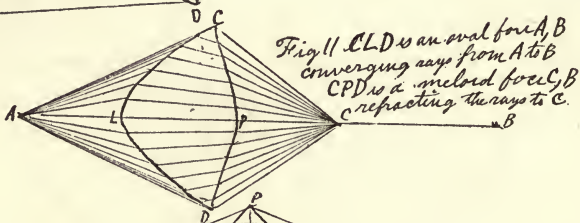 D
C
Fig 11 CLD is an oval foci A, B
converging rays from A to B
CPD is a meloid foci C, B
refracting the rays to C.
A
L
P
C
B
D
P